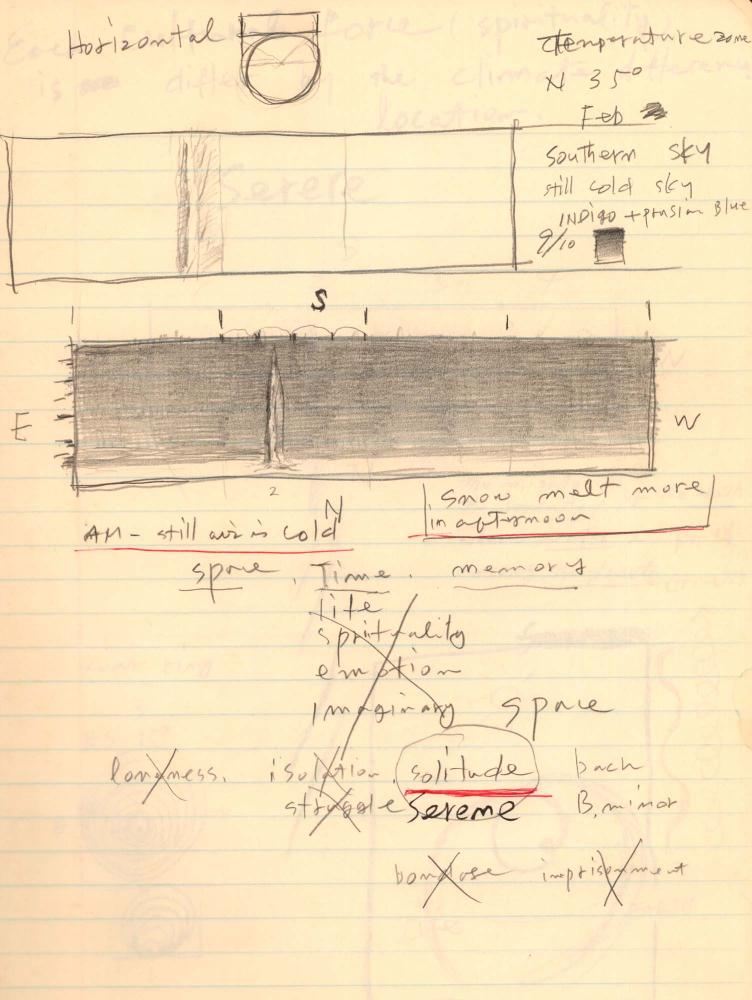 Horizontal
Temperature zone
N 35°
Feb
Southern sky
still cold sky
INDigo + prusian Blue
9/10
S
E
W
2
N
AM - still air is cold
Snow melt more
in afternoon
space, Time, memory
life
spirituality
emotion
Imaginary space
isolation, solitude bach
struggle Sereme B, minor
imprisonment